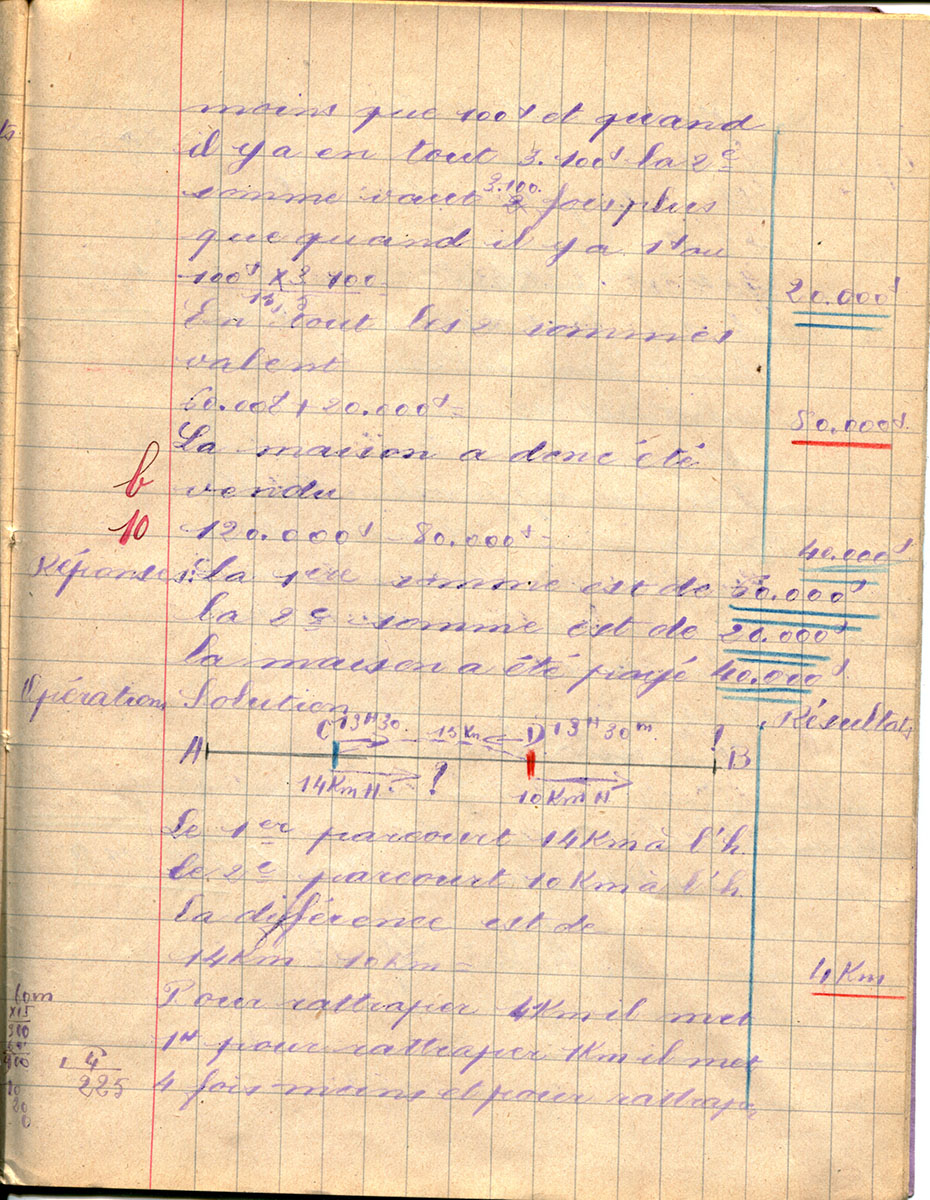 moins que 100f et quand
il y a en tout 3.100f la 2e
somme vaut 3.100. fois plus
que quand il y a 1f ou
100f × 3 100
20.000f
En tout les 2 sommes
valent
60.00f + 20.000f =
80.000f
La maison a donc été
b vendu
10 120.000f - 80.000f =
40.000f
Réponses: la 1ere somme est de 60.000f
la 2e somme est de 20.000f
la maison a été payé 40.000f
Opérations Solution Résultats
C 19H30 15Km D 19H 30m !
A B
14Km H ? 10Km H
Le 1er parcourt 14Km à l'h.
Le 2e parcourt 10Km à l'h
La différence est de
14Km 10Km =
4 Km
Pour rattraper 4Km il met
1H pour rattraper 1Km il met
4 fois moins et pour rattraper
60m
×15
300
4
225